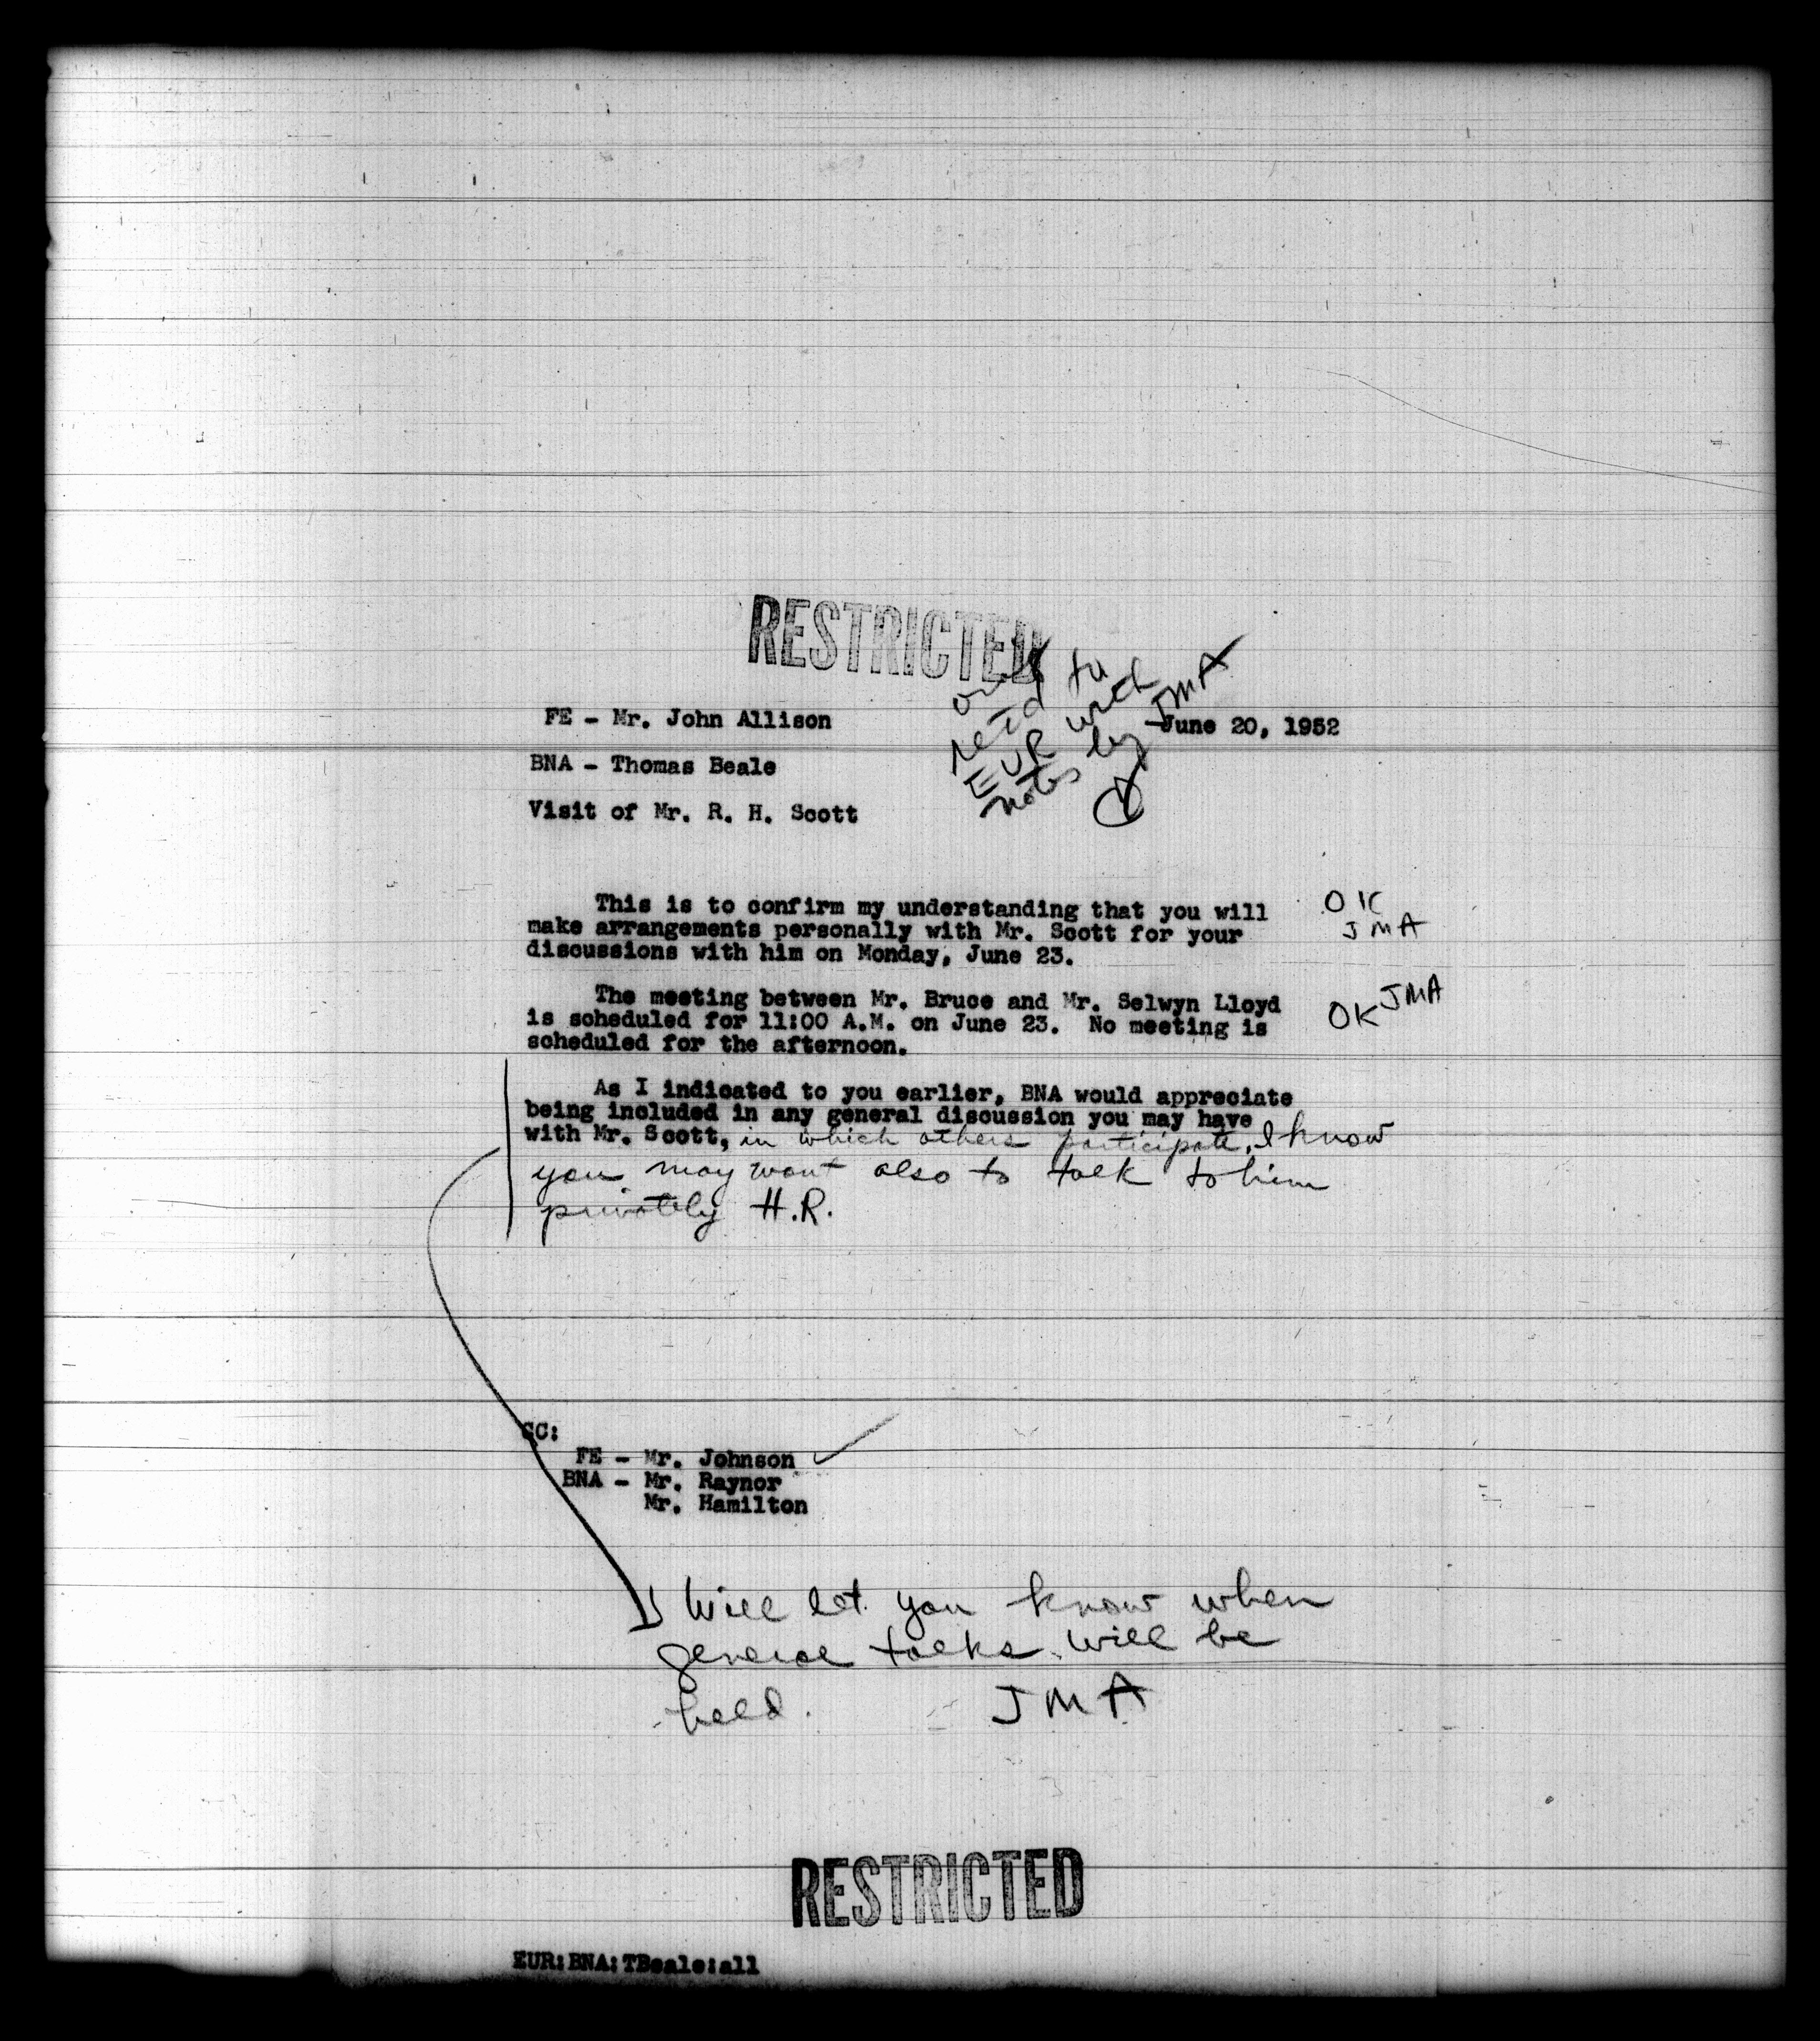 RESTRICTED
orig
ret'd to
EUR with
notes by JMA
FE - Mr. John Allison
June 20, 1952
BNA - Thomas Beale
Visit of Mr. R. H. Scott
This is to confirm my understanding that you will
make arrangements personally with Mr. Scott for your
discussions with him on Monday, June 23.
OK
JMA
The meeting between Mr. Bruce and Mr. Selwyn Lloyd
is scheduled for 11:00 A.M. on June 23. No meeting is
scheduled for the afternoon.
OK JMA
As I indicated to you earlier, BNA would appreciate
being included in any general discussion you may have
with Mr. Scott, in which others participate. I know
you may want also to talk to him
privately H.R.
CC:
FE - Mr. Johnson
BNA - Mr. Raynor
Mr. Hamilton
Will let you know when
general talks will be
held. JMA
RESTRICTED
EUR:BNA:TBeale:all